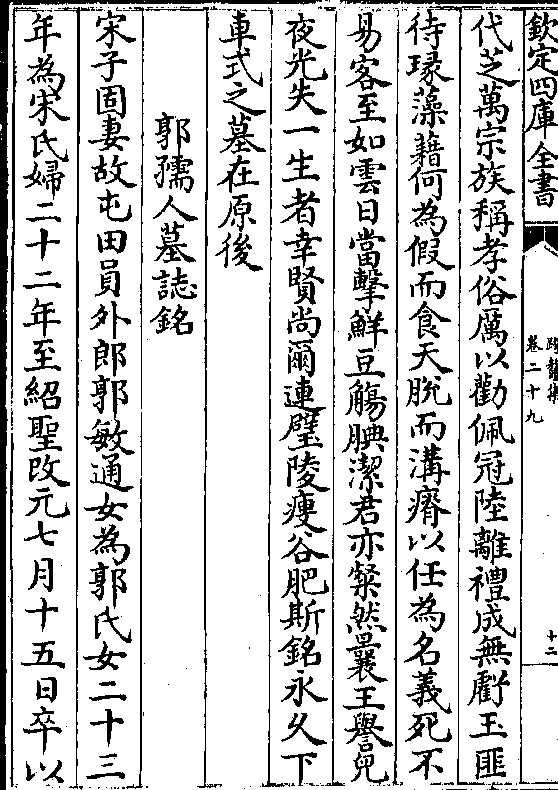 欽定四庫全書
卷二十九
十二
代芝萬宗族稱孝俗厲以勸佩冠陸離禮成無虧玉匪
待琢藻藉何為假而食天脫而溝瘠以任為名義死不
易客至如雲日當擊鮮豆觴腆潔君亦粲然曩王譽兒
夜光失一生者幸賢尚爾連璧陵痩谷肥斯銘永久下
車式之墓在原後
郭孺人墓誌銘
宋子固妻故屯田員外郎郭敏通女為郭氏女二十三
年為宋氏婦二十二年至紹聖改元七月十五日卒以